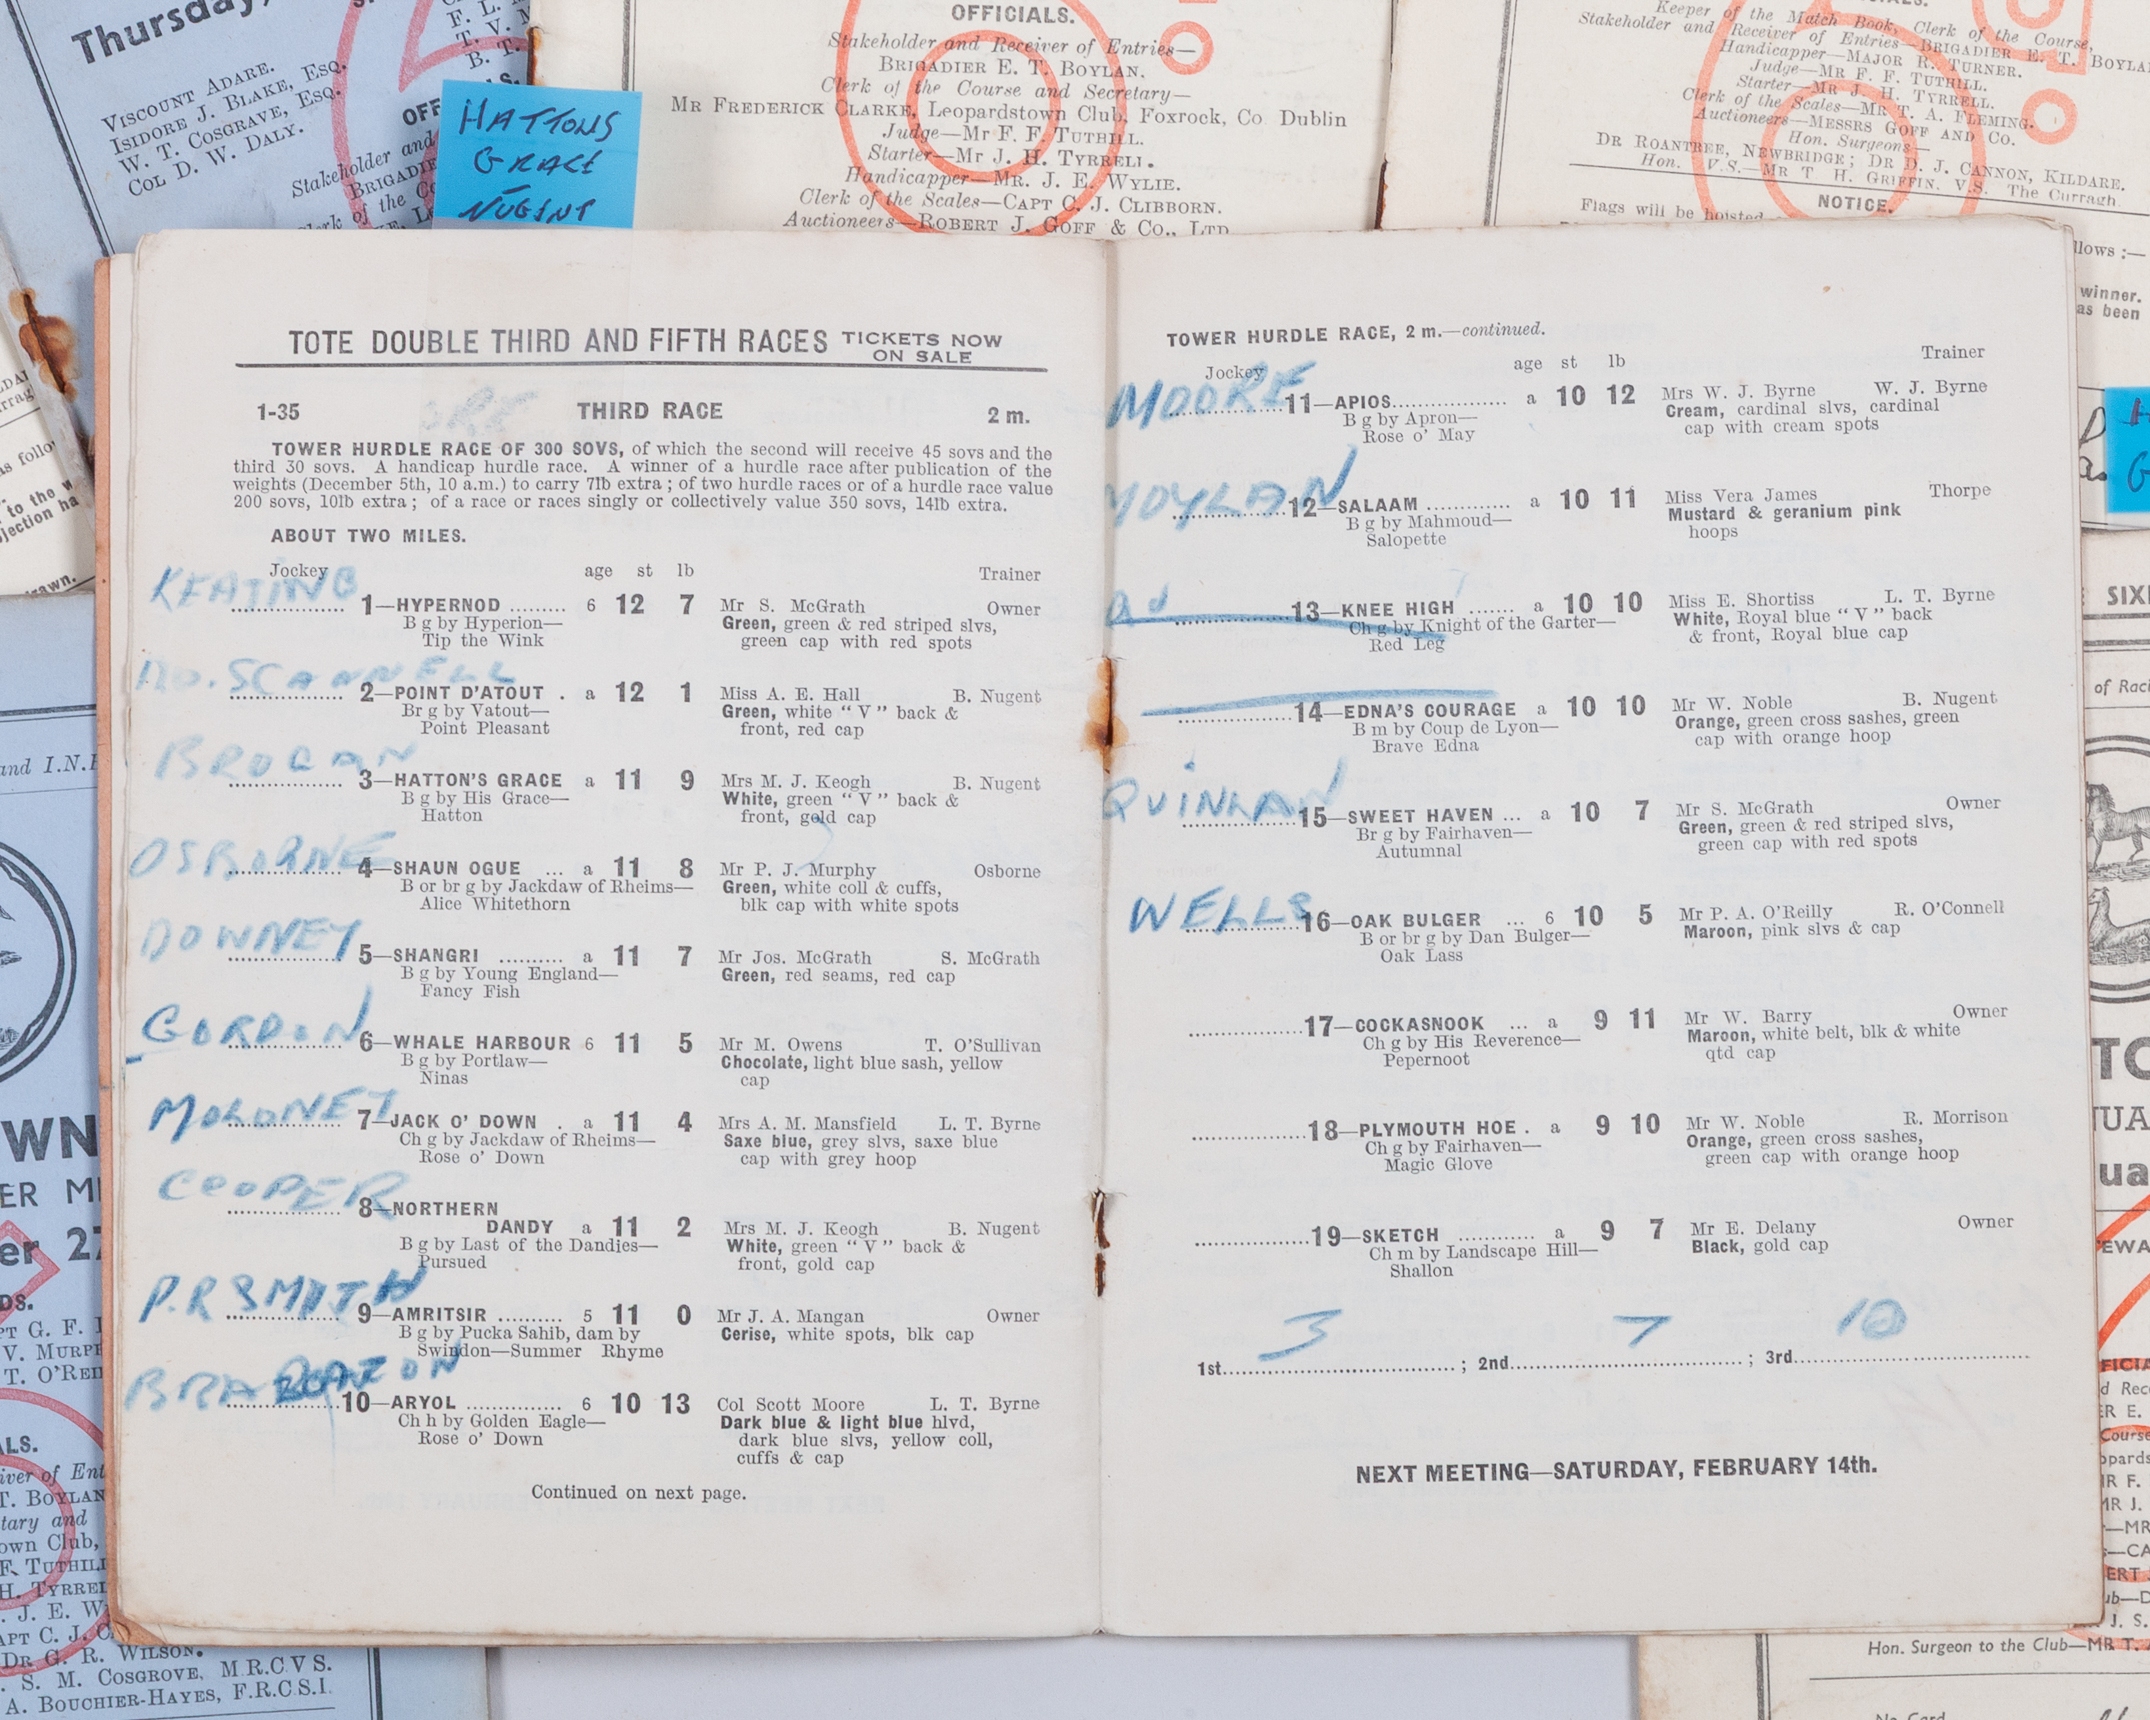 Thursday,
VISCOUNT ADARE.
ISIDORE J. BLAKE, ESQ.
W. T. COSGRAVE, ESQ.
COL D. W. DALY.
Stakeholder and
HATTONS
GRACE
NUGENT
OFFICIALS.
Stakeholder and Receiver of Entries—
BRIGADIER E. T. BOYLAN.
Clerk of the Course and Secretary—
MR FREDERICK CLARKE, Leopardstown Club, Foxrock, Co Dublin
Judge—MR F. F. TUTHILL.
Starter—MR J. H. TYRRELL.
Handicapper—MR. J. E. WYLIE.
Clerk of the Scales—CAPT C. J. CLIBBORN.
Auctioneers—ROBERT J. GOFF & CO., LTD
Keeper of the Match Book, Clerk of the Course,
Stakeholder and Receiver of Entries—BRIGADIER E. T. BOYLA
Handicapper—MAJOR R. TURNER.
Judge—MR F. F. TUTHILL.
Starter—MR J. H. TYRRELL.
Clerk of the Scales—MR T. A. FLEMING.
Auctioneers—MESSRS GOFF AND CO.
Hon. Surgeons—
DR ROANTREE, NEWBRIDGE; DR D. J. CANNON, KILDARE.
Hon. V.S.—MR T. H. GRIFFIN. V.S. The Curragh
NOTICE.
Flags will be hoisted
llows :—
winner.
as been
TOTE DOUBLE THIRD AND FIFTH RACES TICKETS NOW
ON SALE
1-35 THIRD RACE 2 m.
TOWER HURDLE RACE OF 300 SOVS, of which the second will receive 45 sovs and the
third 30 sovs. A handicap hurdle race. A winner of a hurdle race after publication of the
weights (December 5th, 10 a.m.) to carry 7lb extra ; of two hurdle races or of a hurdle race value
200 sovs, 10lb extra ; of a race or races singly or collectively value 350 sovs, 14lb extra.
ABOUT TWO MILES.
Jockey age st lb Trainer
KEATING
1—HYPERNOD ......... 6 12 7 Mr S. McGrath Owner
B g by Hyperion— Green, green & red striped slvs,
Tip the Wink green cap with red spots
SCANNELL
2—POINT D'ATOUT . a 12 1 Miss A. E. Hall B. Nugent
Br g by Vatout— Green, white “ V ” back &
Point Pleasant front, red cap
BROGAN
3—HATTON'S GRACE a 11 9 Mrs M. J. Keogh B. Nugent
B g by His Grace— White, green “ V ” back &
Hatton front, gold cap
OSBORNE
4—SHAUN OGUE ... a 11 8 Mr P. J. Murphy Osborne
B or br g by Jackdaw of Rheims— Green, white coll & cuffs,
Alice Whitethorn blk cap with white spots
DOWNEY
5—SHANGRI .......... a 11 7 Mr Jos. McGrath S. McGrath
B g by Young England— Green, red seams, red cap
Fancy Fish
GORDON
6—WHALE HARBOUR 6 11 5 Mr M. Owens T. O'Sullivan
B g by Portlaw— Chocolate, light blue sash, yellow
Ninas cap
MOLONEY
7—JACK O' DOWN . a 11 4 Mrs A. M. Mansfield L. T. Byrne
Ch g by Jackdaw of Rheims— Saxe blue, grey slvs, saxe blue
Rose o' Down cap with grey hoop
COOPER
8—NORTHERN
DANDY a 11 2 Mrs M. J. Keogh B. Nugent
B g by Last of the Dandies— White, green “ V ” back &
Pursued front, gold cap
P.R SMITH
9—AMRITSIR .......... 5 11 0 Mr J. A. Mangan Owner
B g by Pucka Sahib, dam by Cerise, white spots, blk cap
Swindon—Summer Rhyme
10—ARYOL .............. 6 10 13 Col Scott Moore L. T. Byrne
Ch h by Golden Eagle— Dark blue & light blue hlvd,
Rose o' Down dark blue slvs, yellow coll,
cuffs & cap
Continued on next page.
TOWER HURDLE RACE, 2 m.—continued.
Jockey age st lb Trainer
MOORE
11—APIOS.................. a 10 12 Mrs W. J. Byrne W. J. Byrne
B g by Apron— Cream, cardinal slvs, cardinal
Rose o' May cap with cream spots
MOYLAN
12—SALAAM ............. a 10 11 Miss Vera James Thorpe
B g by Mahmoud— Mustard & geranium pink
Salopette hoops
13—KNEE HIGH ....... a 10 10 Miss E. Shortiss L. T. Byrne
Ch g by Knight of the Garter— White, Royal blue “ V ” back
Red Leg & front, Royal blue cap
14—EDNA'S COURAGE a 10 10 Mr W. Noble B. Nugent
B m by Coup de Lyon— Orange, green cross sashes, green
Brave Edna cap with orange hoop
QUINLAN
15—SWEET HAVEN ... a 10 7 Mr S. McGrath Owner
Br g by Fairhaven— Green, green & red striped slvs,
Autumnal green cap with red spots
WELLS
16—OAK BULGER ... 6 10 5 Mr P. A. O'Reilly R. O'Connell
B or br g by Dan Bulger— Maroon, pink slvs & cap
Oak Lass
17—COCKASNOOK ... a 9 11 Mr W. Barry Owner
Ch g by His Reverence— Maroon, white belt, blk & white
Pepernoot qtd cap
18—PLYMOUTH HOE . a 9 10 Mr W. Noble R. Morrison
Ch g by Fairhaven— Orange, green cross sashes,
Magic Glove green cap with orange hoop
19—SKETCH ............ a 9 7 Mr E. Delany Owner
Ch m by Landscape Hill— Black, gold cap
Shallon
3 7 10
1st.................... ; 2nd.................... ; 3rd....................
NEXT MEETING—SATURDAY, FEBRUARY 14th.
and I.N.
WN
ER M
er 27
T. O'REI
ALS.
iver of Ent
T. BOYLAN
tary and
own Club,
F. TUTHILL
H. TYRREL
J. E. W
APT C. J. C
DR G. R. WILSON.
S. M. COSGROVE, M.R.C.V S.
A. BOUCHIER-HAYES, F.R.C.S.I.
SIX
of Raci
TO
UA
Hon. Surgeon to the Club—MR T.
No Card